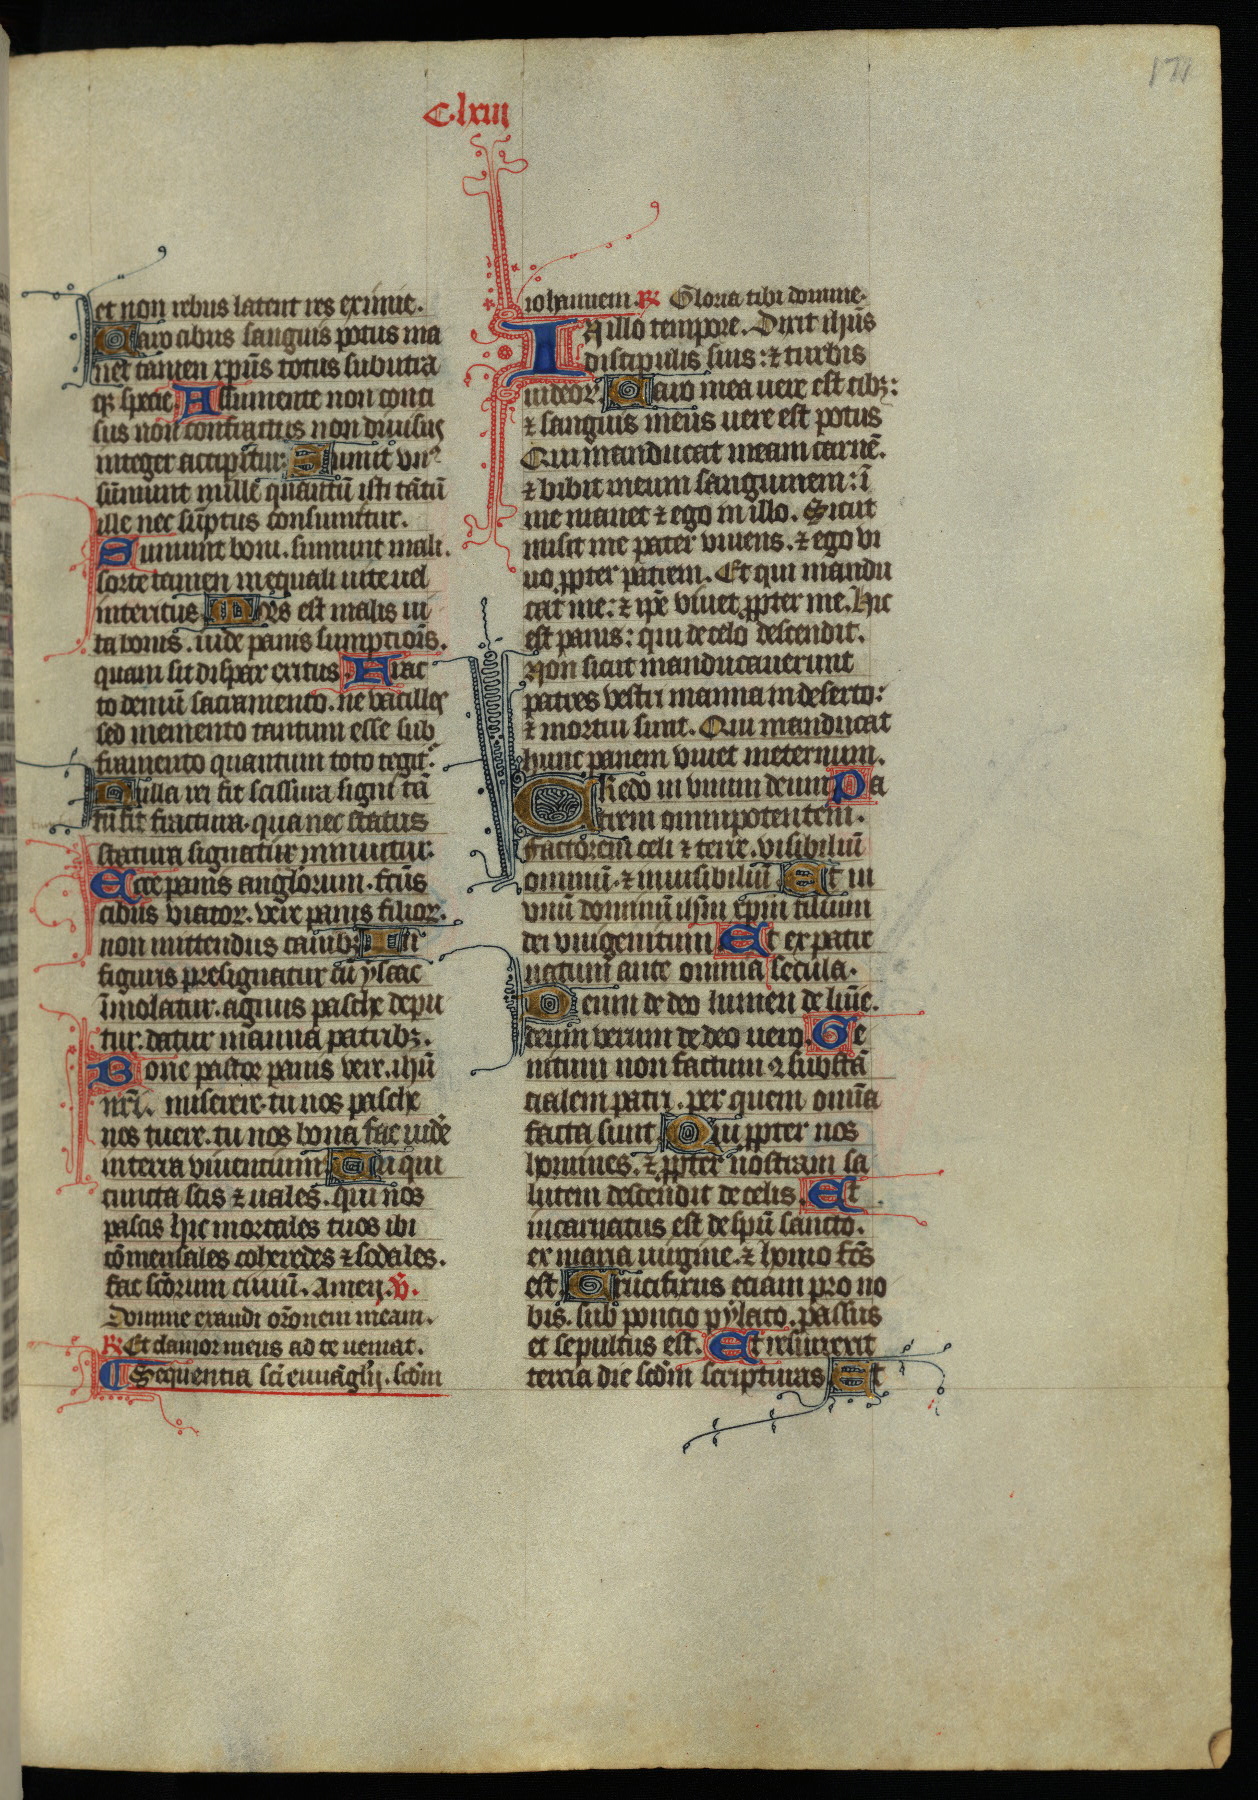 C.lxiii
171
et non rebus latent res eximie.
Caro cibus sanguis potus ma
net tamen xp̄us totus sub utra
qꝫ specie. A sumente non conci
sus non confractus non divisus
integer accipitur. Sumit vn⁹
sumunt mille quantū isti tātū
ille nec sūptus consumitur.
Sumunt boni. sumunt mali.
sorte tamen inequali uite uel
interitus. Mors est malis ui
ta bonis. uide panis sumptiois̄.
quam sit dispar exitus. Frac
to demū sacramento. ne vacilles
sed memento tantum esse sub
fragmento quantum toto tegit᷑.
Nulla rei fit scissura signi tā
tū fit fractura. qua nec status
statura signatur minuitur.
Ecce panis anglorum. fcūs
cibus viator. vere panis filior.
non mittendus canibꝫ. In
figuris presignatur cū ysaac
īmolatur. agnus pasche depu
tur. datur manna patribꝫ.
Bone pastor panis vere. ihū
nrī. miserere. tu nos pasche
nos tuere. tu nos bona fac uidē
in terra viventium. Tu qui
cuncta scis ⁊ uales. qui nos
pascis hic mortales tuos ibi
cōmensales coheredes ⁊ sodales.
fac scōrum civiū. Amen. V̄.
Domine exaudi orōnem meam.
R. Et clamor meus ad te ueniat.
Sequentia sci euuāglij. scdm
iohannem. R. Gloria tibi domine.
In illo tempore. Dixit ihūs
discipulis suis: ⁊ turbis
iudeor. Caro mea uere est cibꝫ:
⁊ sanguis meus uere est potus
Qui manducat meam carnē.
⁊ bibit meum sanguinem: ī
me manet ⁊ ego in illo. Sicut
misit me pater vivens. ⁊ ego vi
uo ꝓpter patrem. Et qui mandu
cat me: ⁊ ipē vivet ꝓpter me. Hic
est panis: qui de celo descendit.
Non sicut manducauerunt
patres vestri manna in deserto:
⁊ mortui sunt. Qui manducat
hunc panem vivet in eternum.
Credo in vnum deum Pa
trem omnipotentem.
factorem celi ⁊ terre. visibiliū
omniū. ⁊ invisibiliū. Et in
vnū dominū ihm̄ xpm̄ filium
dei vnigenitum Et ex patre
natum ante omnia secula.
Deum de deo lumen de lūie.
deum verum de deo uero. Ge
nitum non factum ꝯsubstā
tialem patri. per quem omīa
facta sunt. Qui ꝓpter nos
homines. ⁊ ꝓpter nostram sa
lutem descendit de celis. Et
incarnatus est de spū sancto.
ex maria uirgine. ⁊ homo fcs̄
est. Crucifixus etiam pro no
bis. sub poncio pylato. passus
et sepultus est. Et resurrexit
tercia die scdm scripturas Et